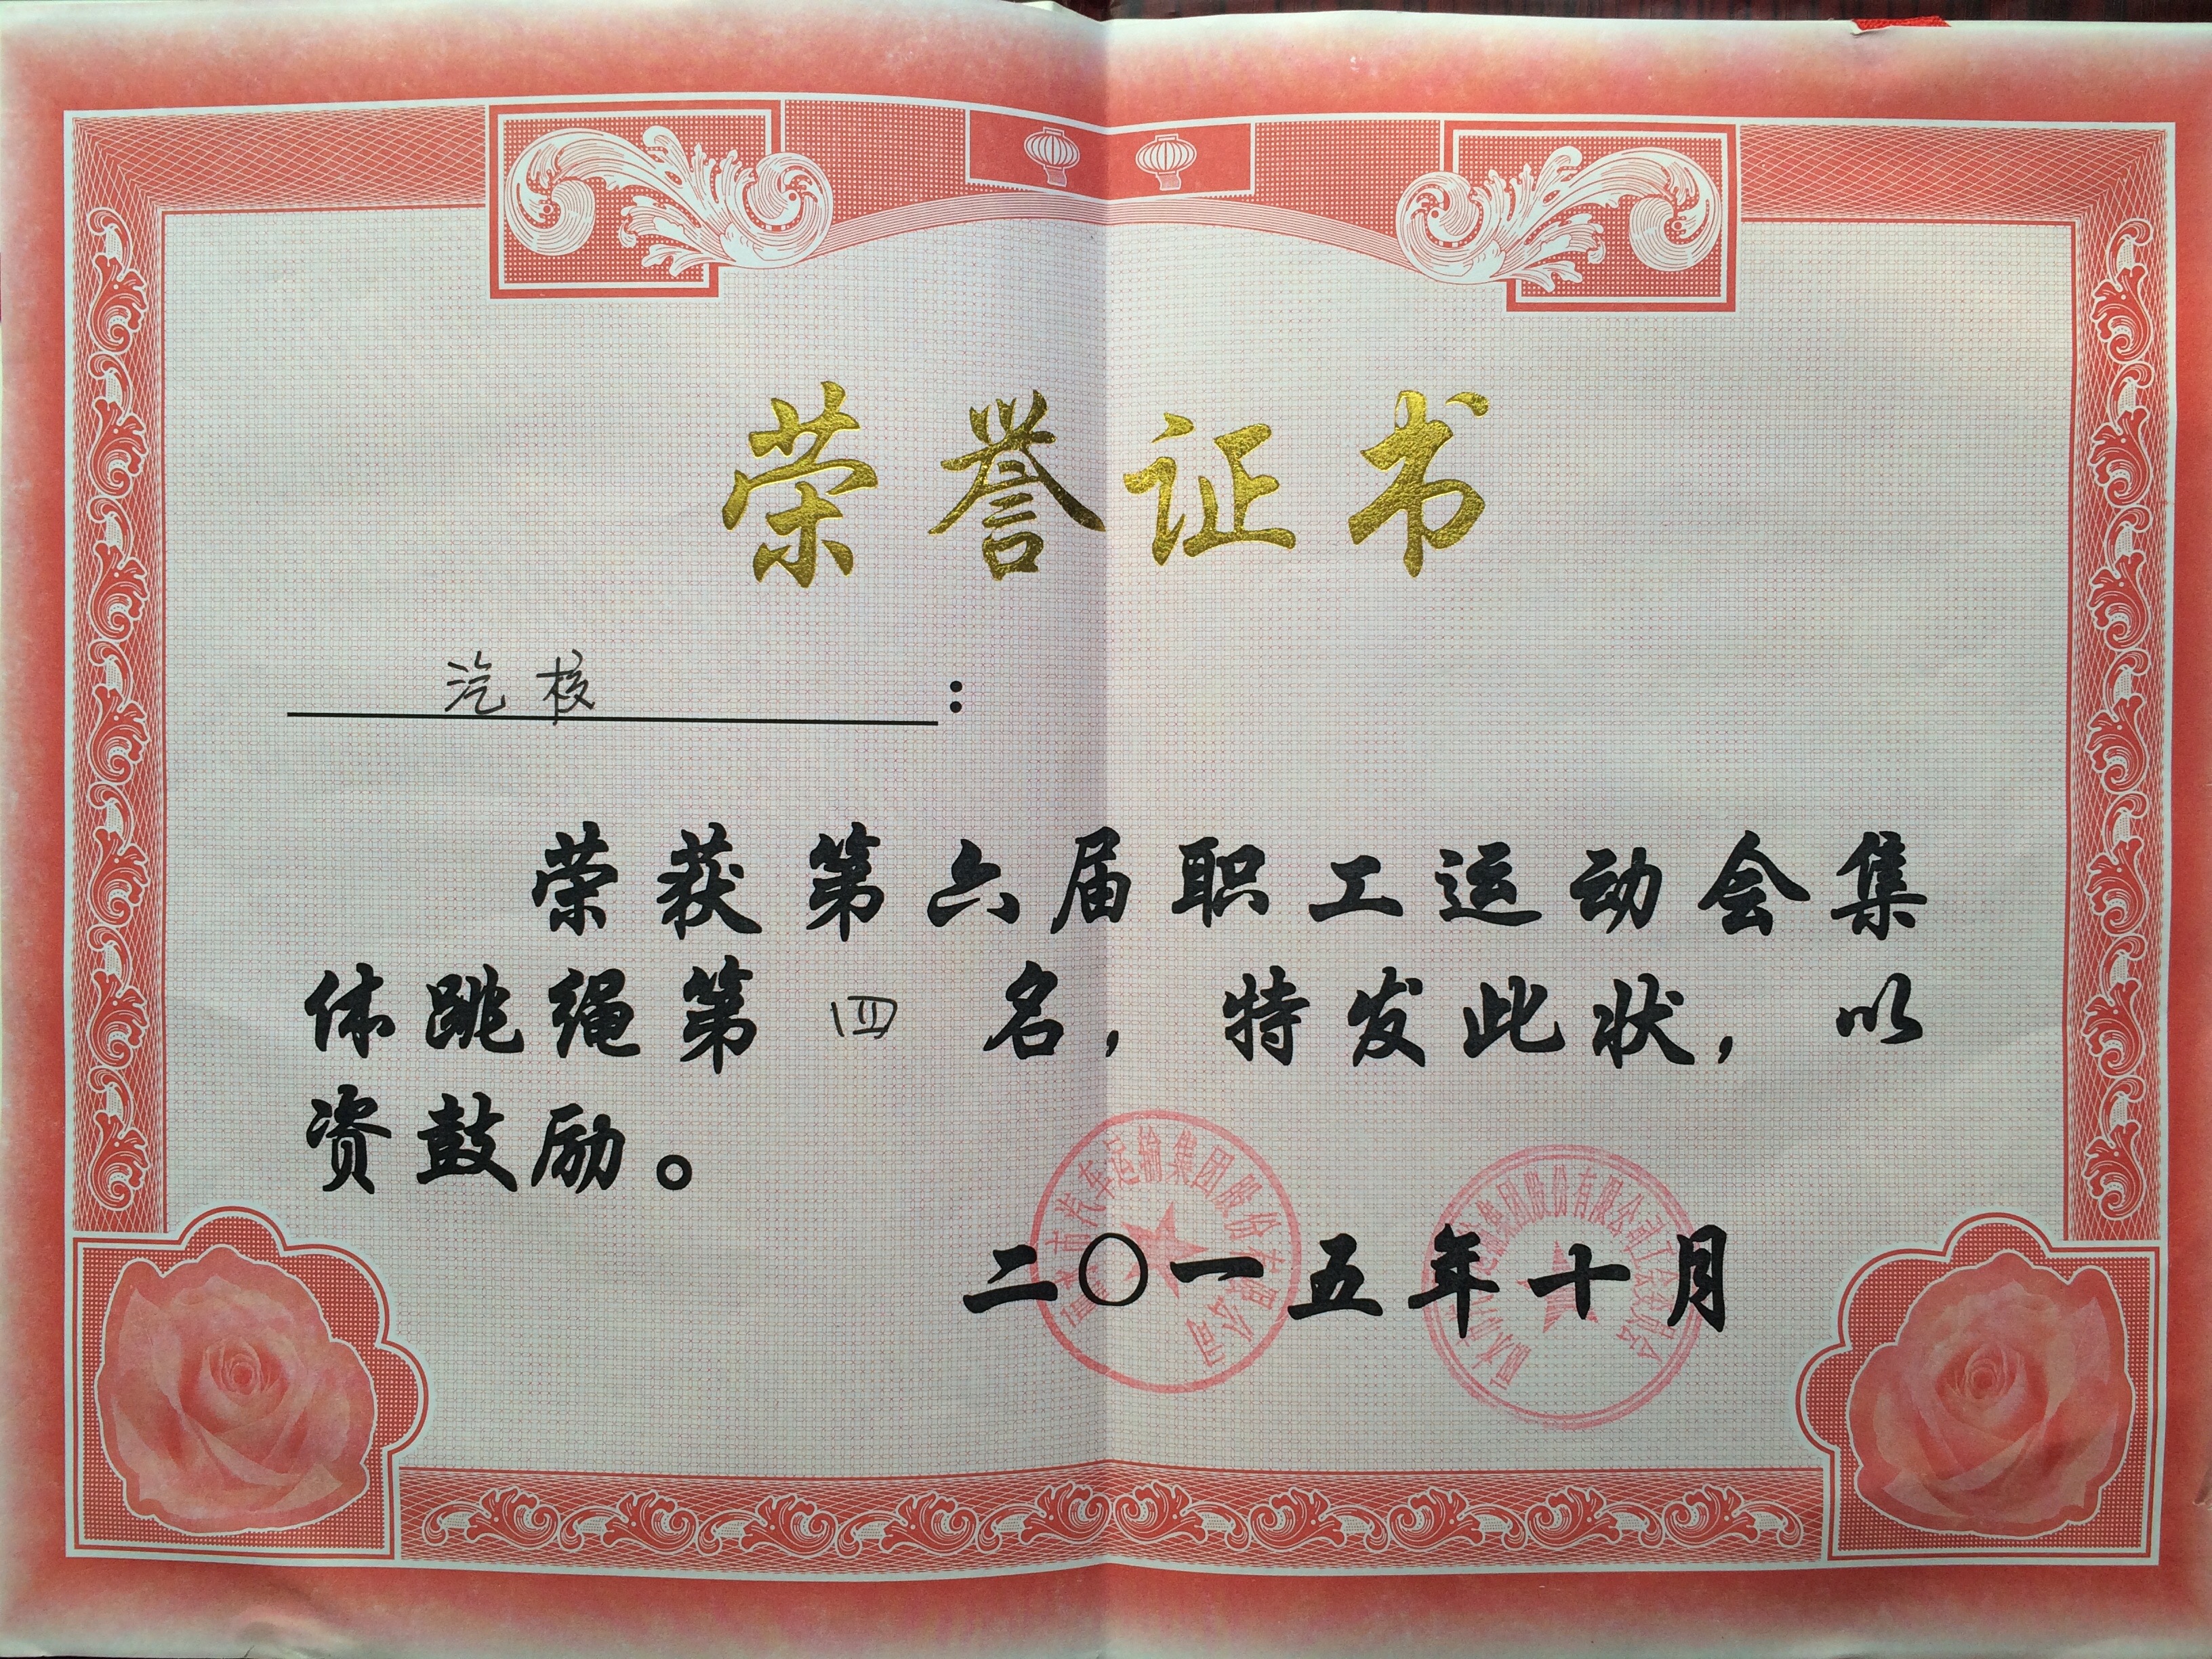 荣誉证书
汽校：
荣获第六届职工运动会集
体跳绳第四名，特发此状，以
资鼓励。
市汽车运输集团股份有限公司
集团股份有限公司工会委员会
二〇一五年十月